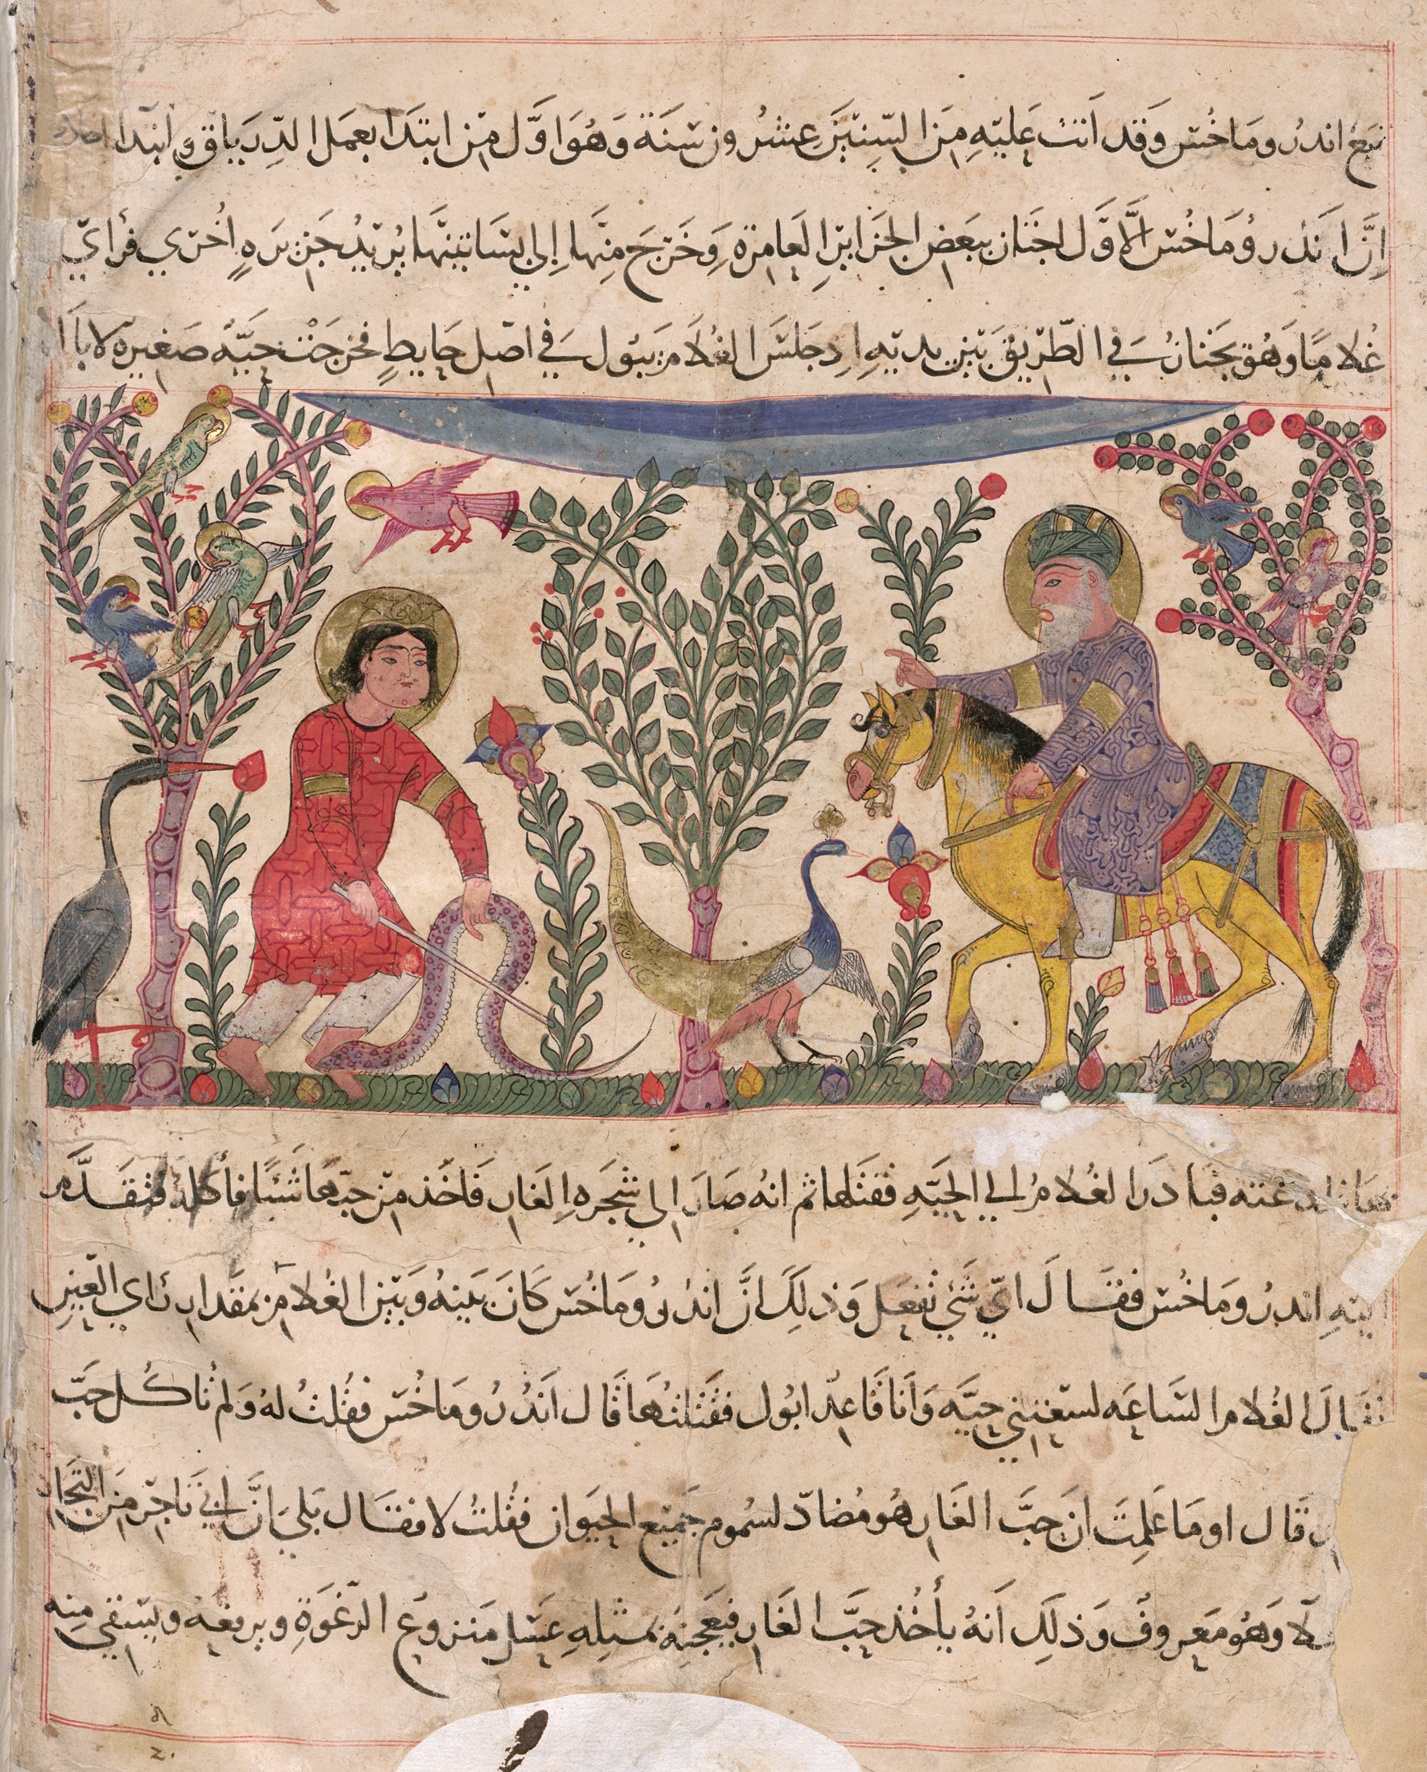 نبغ اندروماخس وقد اتت عليه من السنين عشرون سنة وهو اول من ابتدا بعمل الدرياق وابتدا
ان اندروماخس الاول اجتاز ببعض الجزاير العامرة وخرج منها الى بساتينها يريد جزيره اخرى فراى
غلاما وهو يجتاز في الطريق بين يديه اذ جلس الغلام يبول في اصل حايط فخرجت حية صغيرة
فبادر الغلام الى الحيه فقتلها ثم انه صار الى شجره الغار فاخذ من حبها شيئا فاكله فتقدم
اليه اندروماخس فقال اي شي تفعل وذلك ان اندروماخس كان بينه وبين الغلام بمقدار راي العين
فقال الغلام الساعه لسعتني حيه وانا قاعد ابول فقتلتها قال اندروماخس فقلت له ولم تاكل حب
قال او ما علمت ان حب الغار هو مضاد لسموم جميع الحيوان فقلت لا فقال بلى ان ابي تاجر من التجار
وهو معروف وذلك انه يأخذ حب الغار فيعجنه بمثله عسل منزوع الرغوة ويرفعه ويستقي منه